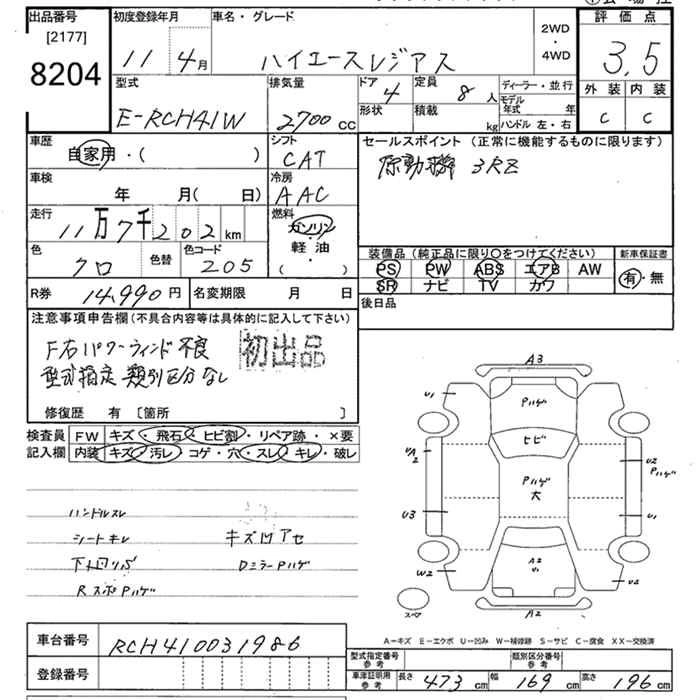 出品番号 初度登録年月 車名・グレード 評価点
[2177]
8204
11 4月 ハイエースレジアス 2WD・4WD 3.5
型式 排気量 ドア 4 定員 8人 ディーラー・並行 外装 内装
E-RCH41W 2700cc 形状 積載 kg モデル年式 年 ハンドル 左・右 C C
車歴 シフト セールスポイント (正常に機能するものに限ります)
自家用・( ) CAT 原動機 3RZ
車検 冷房
年 月( 日) AAC
走行 燃料
11万7千202km ガソリン
軽・油
( ・ )
色 色替 色コード 装備品 (純正品に限り○をつけてください) 新車保証書
クロ 205 PS PW ABS エアB AW 有・無
SR ナビ TV カワ
R券 14,990円 名変期限 月 日 後日品
注意事項申告欄 (不具合内容等は具体的に記入して下さい)
F右パワーウィンド不良 初出品
型式指定 類別区分なし
修復歴 有 [箇所 ]
検査員 FW キズ・飛石・ヒビ割・リペア跡・×要
記入欄 内装 キズ・汚レ・コゲ・穴・スレ・キレ・破レ
ハンドルスレ
シートキレ キズ凹アセ
下回リサビ DミラーPハゲ
RスポPハゲ
A3
U1 Pハゲ
ヒビ
UA2 U2 Pハゲ
Pハゲ 大
U3 U1
A2 U1
W2 U2
A2
スペア
A=キズ E=エクボ U=凹み W=補修跡 S=サビ C=腐食 XX=交換済
車台番号 RCH410031986
登録番号
型式指定番号 参考 類別区分番号 参考
車庫証明用 参考 長さ 473cm 幅 169cm 高さ 196cm